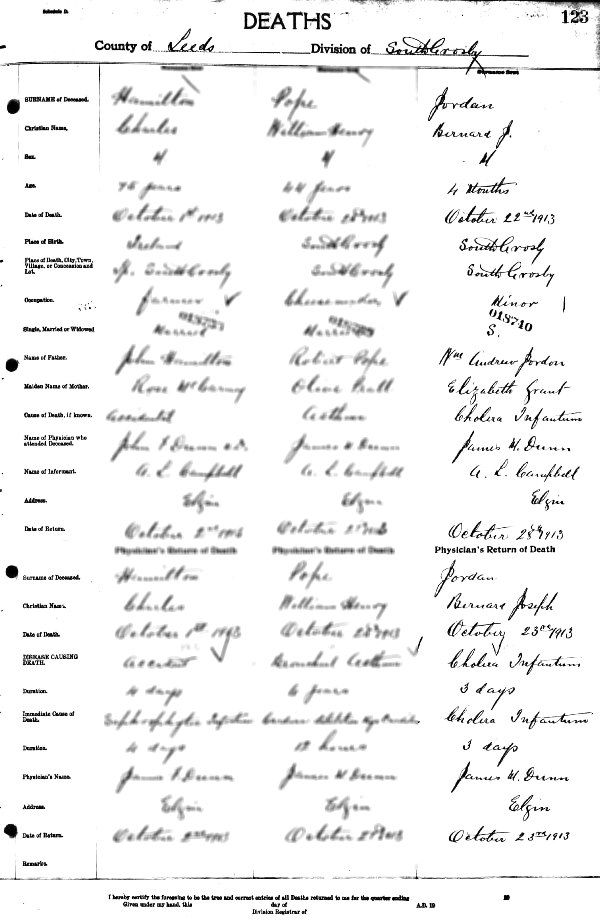 Schedule D.
DEATHS
123
County of Leeds Division of South Crosby
SURNAME of Deceased. Hamilton Pope Jordan
Christian Name, Charles William Henry Bernard J.
Sex. M M M
Age. 75 years 44 years 4 Months
Date of Death. October 1st 1913 October 2nd 1913 October 22nd 1913
Place of Birth. Ireland South Crosby South Crosby
Place of Death, City, Town,
Village, or Concession and
Lot. South Crosby South Crosby South Crosby
Occupation. farmer Cheesemaker Minor
018740
Single, Married or Widowed Married Married S.
Name of Father. John Hamilton Robert Pope Wm Andrew Jordon
Maiden Name of Mother. Rose Olive Pratt Elizabeth Grant
Cause of Death, if known. Accidental Asthma Cholera Infantum
Name of Physician who
attended Deceased. James W. Dunn James W. Dunn
Name of Informant. A. L. Campbell A. L. Campbell A. L. Campbell
Address. Elgin Elgin Elgin
Date of Return. October 2nd 1913 October 1913 October 28th 1913
Physician's Return of Death Physician's Return of Death Physician's Return of Death
Surname of Deceased. Hamilton Pope Jordan
Christian Name. Charles William Henry Bernard Joseph
Date of Death. October 1st 1913 October 2nd 1913 October 23rd 1913
DISEASE CAUSING
DEATH. Accident Bronchial Asthma Cholera Infantum
Duration. 4 days 6 years 3 days
Immediate Cause of
Death. Cholera Infantum
Duration. 4 days 12 hours 3 days
Physician's Name. James W. Dunn James W. Dunn
Address. Elgin Elgin Elgin
Date of Return. October 2nd 1913 October 1913 October 23rd 1913
Remarks.
I hereby certify the foregoing to be the true and correct entries of all Deaths returned to me for the quarter ending 19
Given under my hand, this day of A.D. 19
Division Registrar of